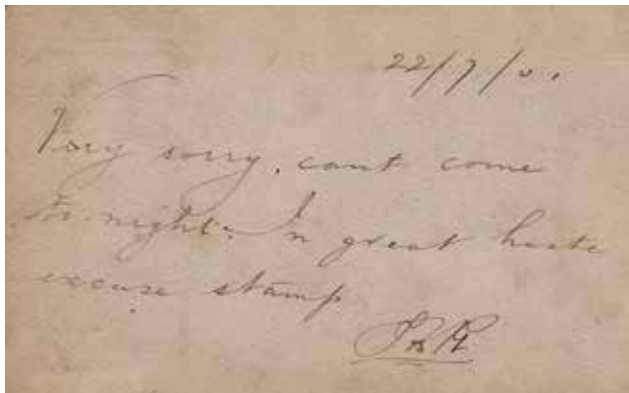 22/7/01
Very sorry, cant come
to-night. In great haste
excuse stamp.